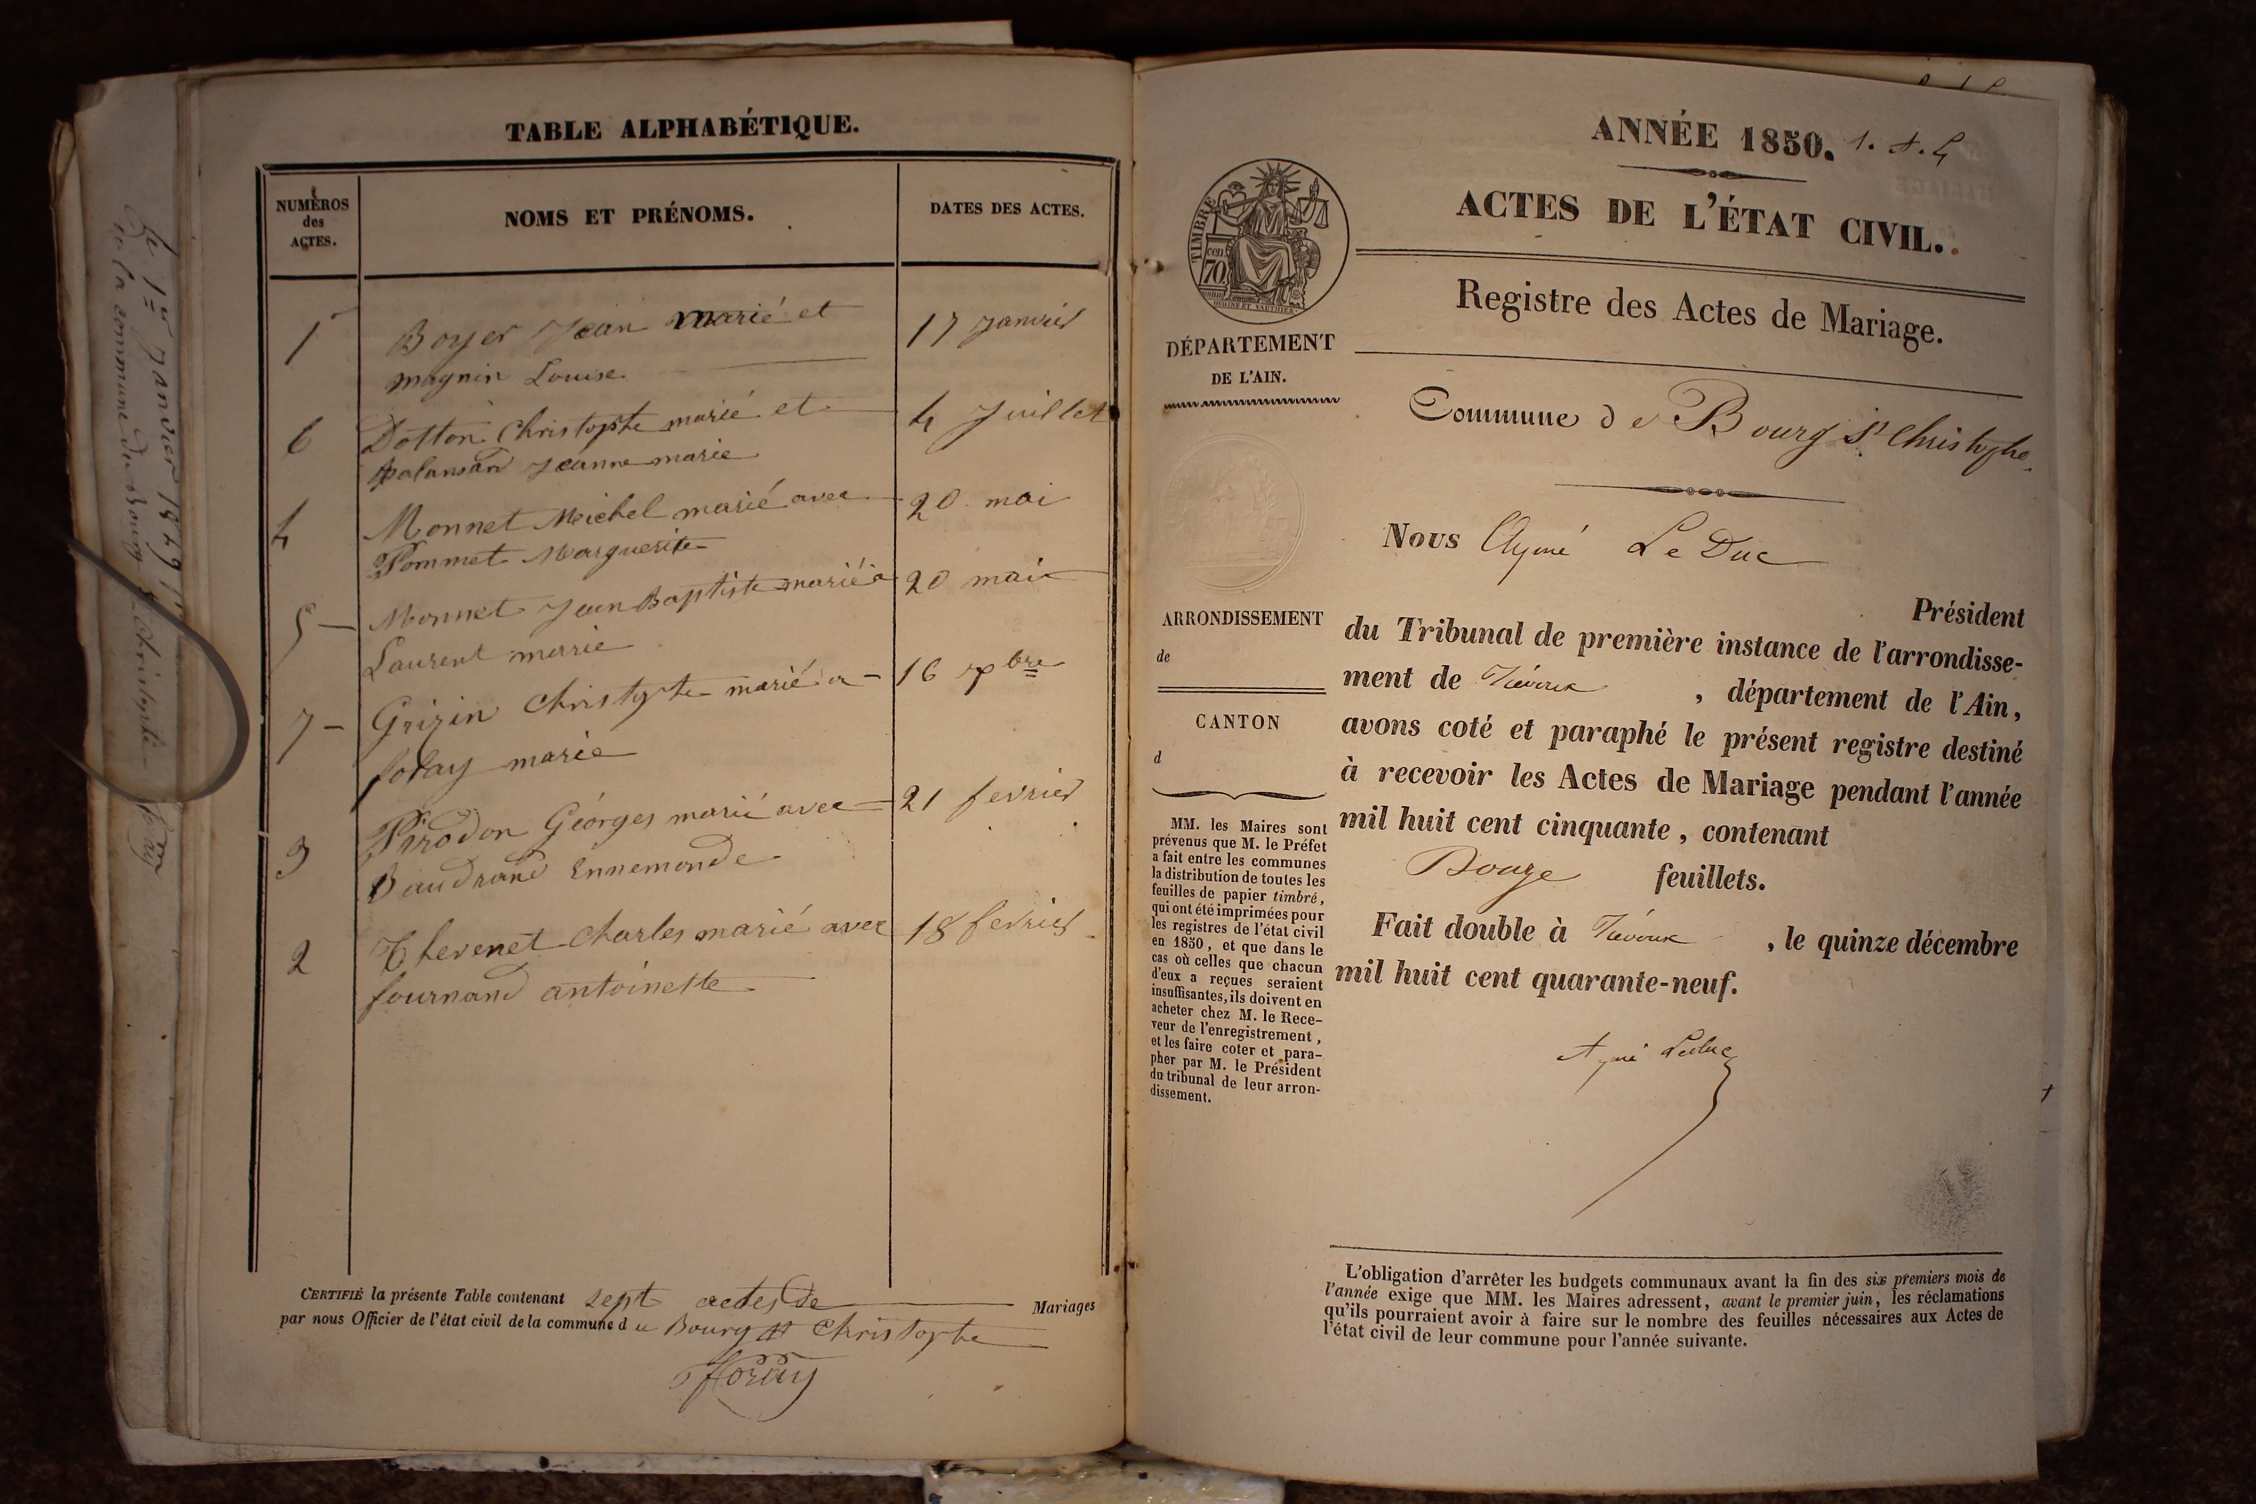 TABLE ALPHABÉTIQUE.
NUMÉROS
des
ACTES.
NOMS ET PRÉNOMS.
DATES DES ACTES.
1 Boyer Jean marié et 17 Janvier
magnin Louise
6 Dotton Christophe marié et 4 Juillet
Jeanne marie
4 Monnet Michel marié avec 20 mai
Pommet Marguerite
5 Monnet Jean Baptiste marié a 20 mai
Laurent marie
7 Grizin Christophe marié a 16 xbre
foray marie
3 Pirodon Géorges marié avec 21 fevrier
Baudrand Ennemonde
2 Thevenet Charles marié avec 18 fevrier
fournand antoinette
CERTIFIÉ la présente Table contenant sept actes de Mariages
par nous Officier de l'état civil de la commune du Bourg St Christophe
foray
le 1er janvier 1849
de la commune du Bourg St Christophe foray
ANNÉE 1850.
ACTES DE L'ÉTAT CIVIL.
TIMBRE
cen
70
Registre des Actes de Mariage.
DÉPARTEMENT
DE L'AIN.
Commune de Bourg St Christophe
Nous Aymé Le Duc
Président
ARRONDISSEMENT
de
CANTON
d
du Tribunal de première instance de l'arrondisse-
ment de Trévoux, département de l'Ain,
avons coté et paraphé le présent registre destiné
à recevoir les Actes de Mariage pendant l'année
mil huit cent cinquante, contenant
Douze feuillets.
Fait double à Trévoux, le quinze décembre
mil huit cent quarante-neuf.
Aymé Leduc
MM. les Maires sont
prévenus que M. le Préfet
a fait entre les communes
la distribution de toutes les
feuilles de papier timbré,
qui ont été imprimées pour
les registres de l'état civil
en 1850, et que dans le
cas où celles que chacun
d'eux a reçues seraient
insuffisantes, ils doivent en
acheter chez M. le Rece-
veur de l'enregistrement,
et les faire coter et para-
pher par M. le Président
du tribunal de leur arron-
dissement.
L'obligation d'arrêter les budgets communaux avant la fin des six premiers mois de
l'année exige que MM. les Maires adressent, avant le premier juin, les réclamations
qu'ils pourraient avoir à faire sur le nombre des feuilles nécessaires aux Actes de
l'état civil de leur commune pour l'année suivante.